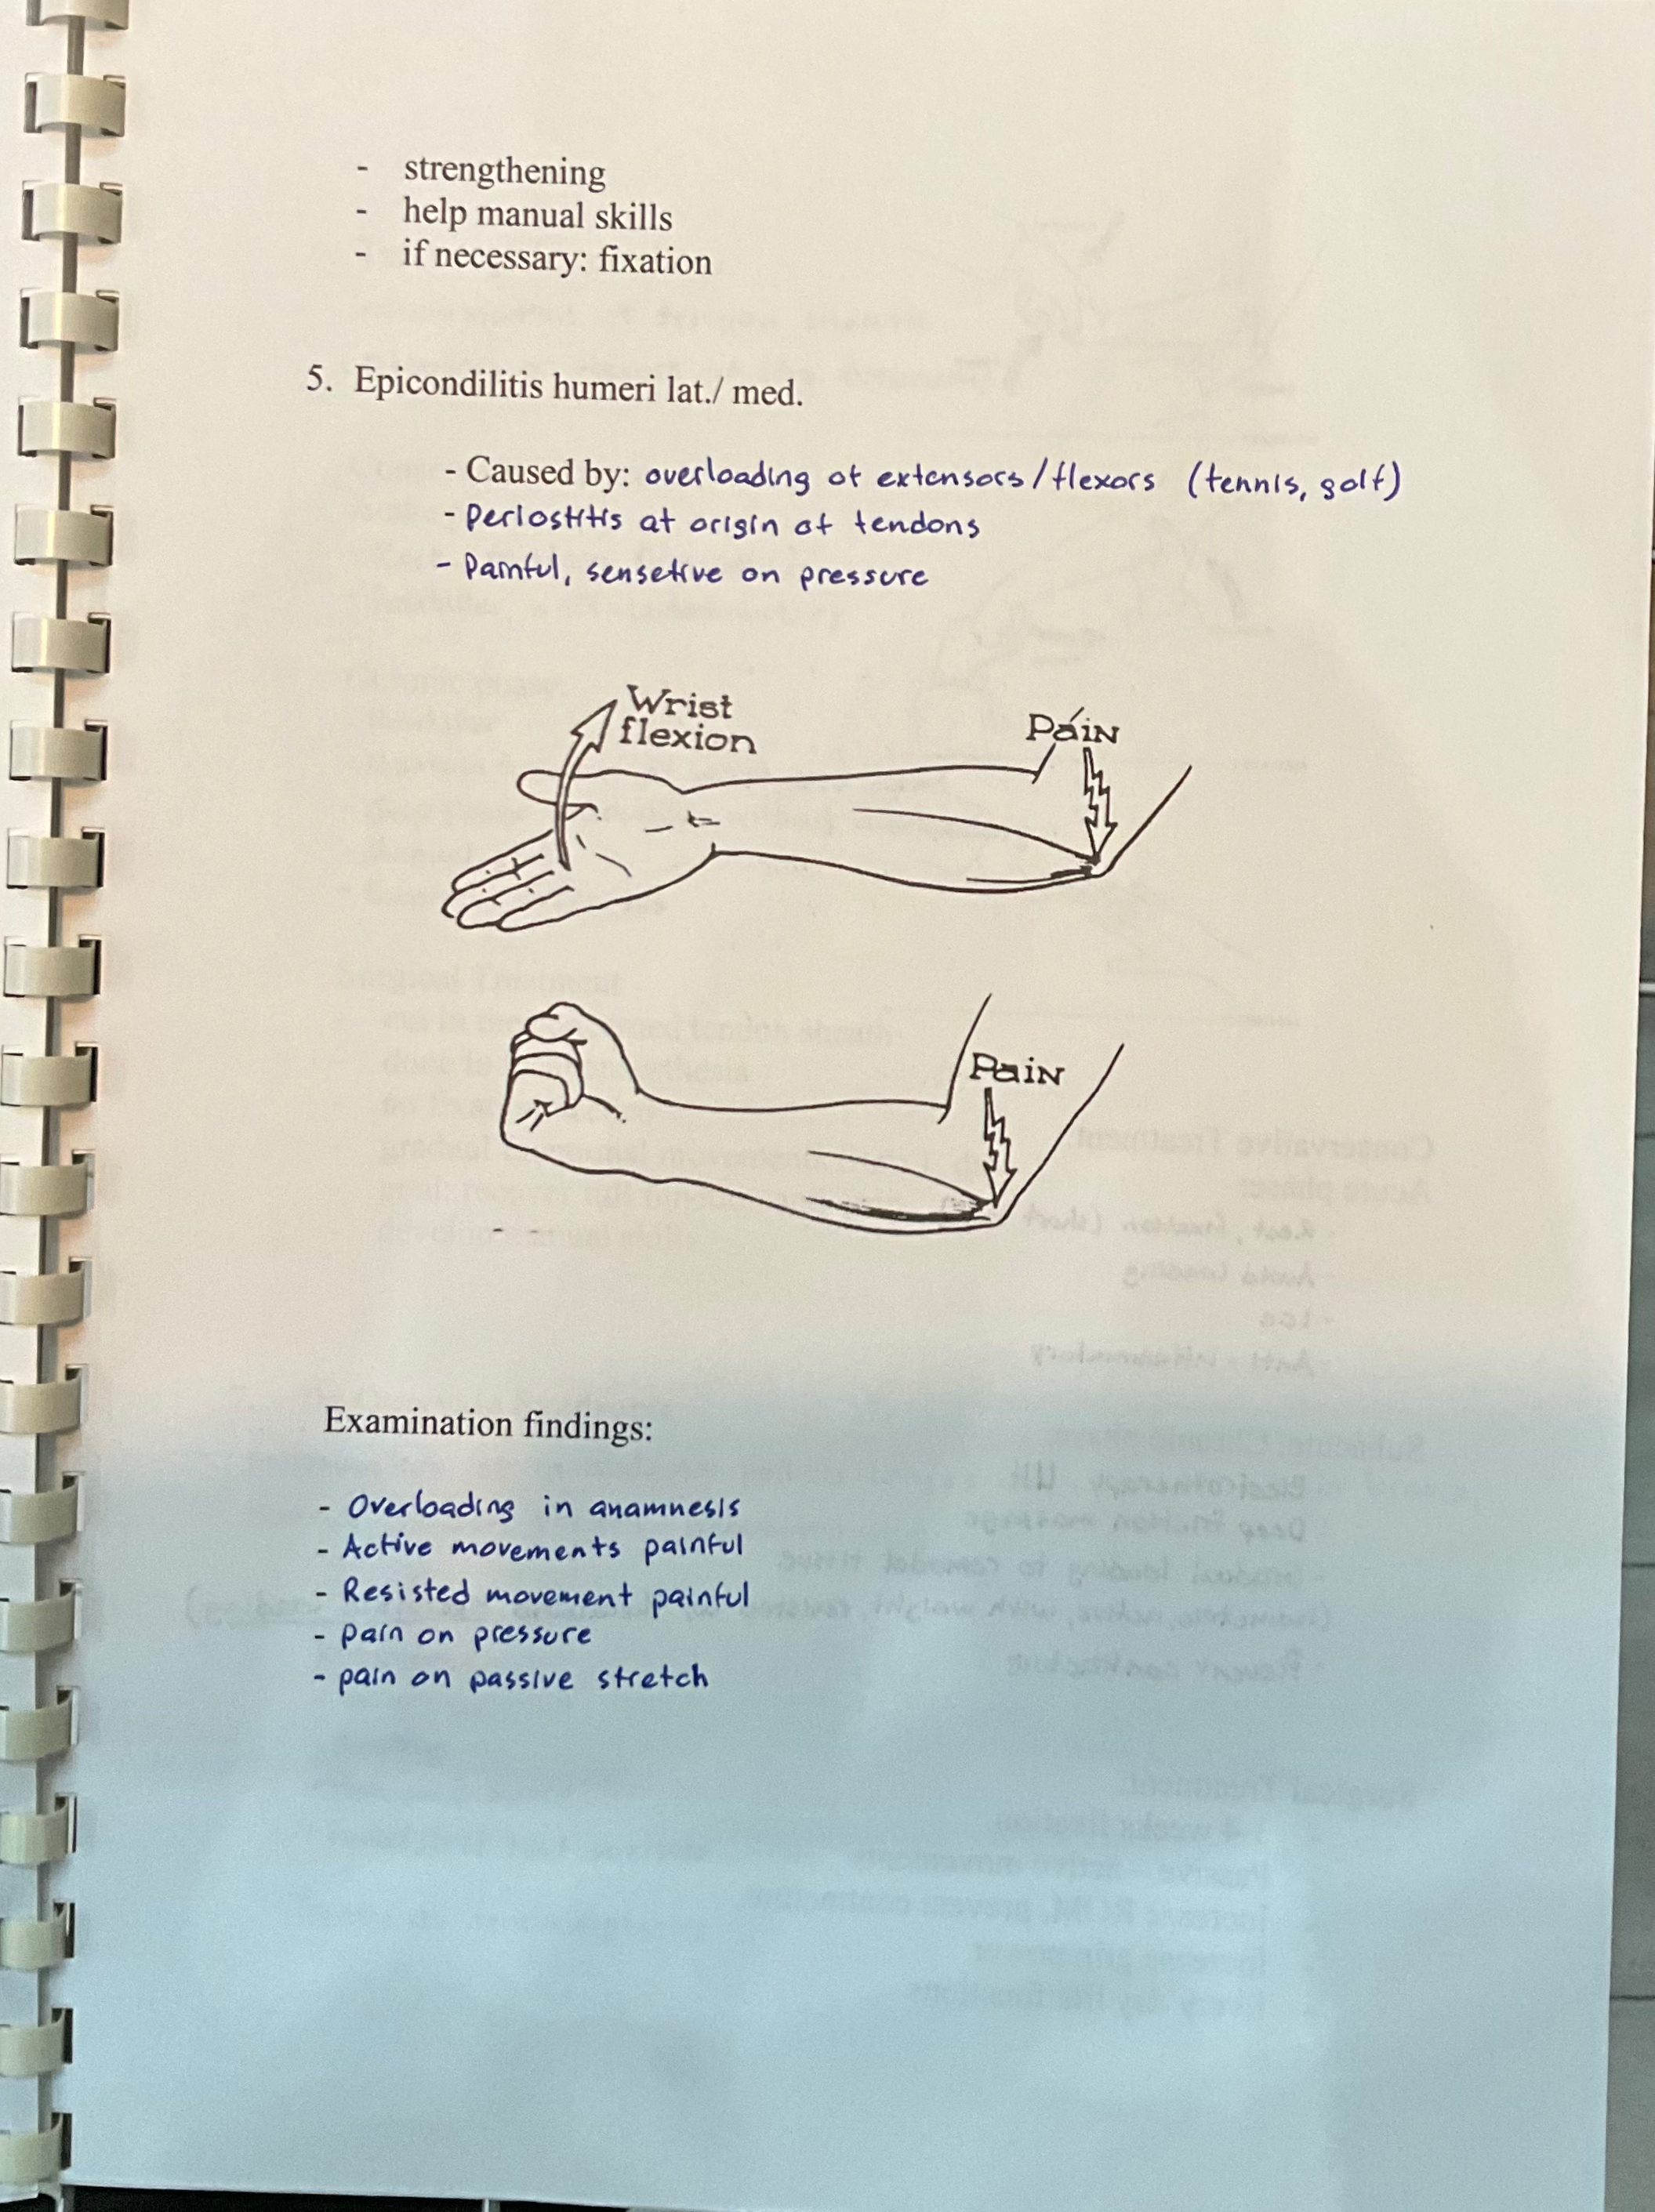 - strengthening
- help manual skills
- if necessary: fixation
5. Epicondilitis humeri lat./ med.
- Caused by: overloading of extensors/flexors (tennis, golf)
- Periostitis at origin of tendons
- Painful, sensetive on pressure
Wrist
flexion
Pain
Pain
Examination findings:
- Overloading in anamnesis
- Active movements painful
- Resisted movement painful
- pain on pressure
- pain on passive stretch